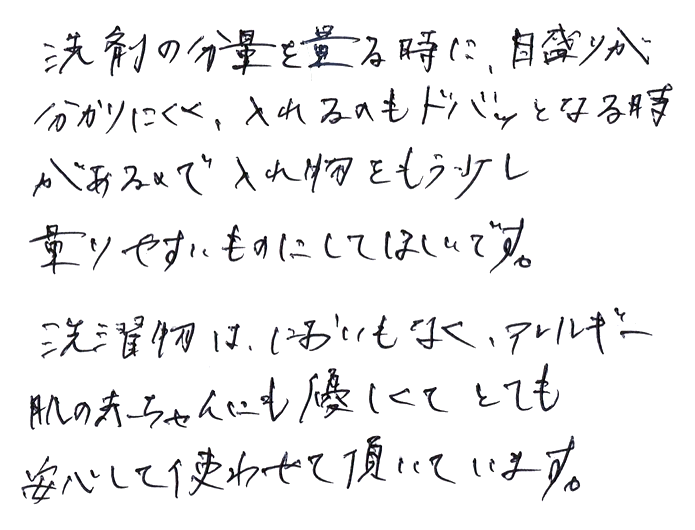 洗剤の分量を量る時に、目盛りが
分かりにくく、入れるのもドバッとなる時
があるので入れ物をもう少し
量りやすいものにしてほしいです。
洗濯物は、においもなく、アレルギー
肌の赤ちゃんにも優しくてとても
安心して使わせて頂いています。